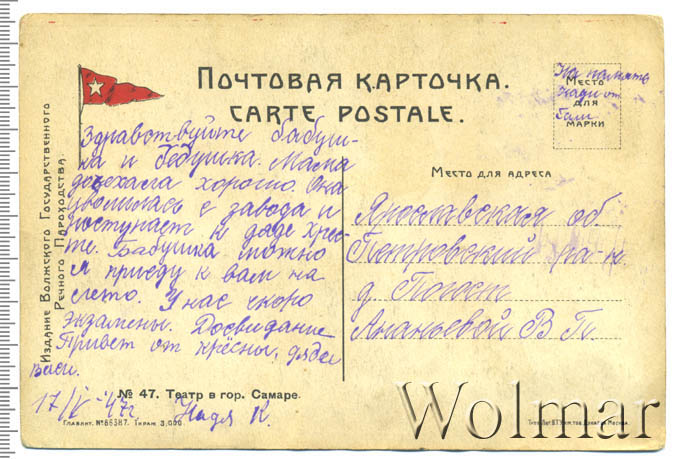 Почтовая карточка.
CARTE POSTALE.
Место
для
марки
На память
Наде от
Гали
Издание Волжского Государственного
Речного Пароходства.
Здравствуйте бабуш-
ка и дедушка. Мама
доехала хорошо. Она
уволилась с завода и
поступает к дяде Хрес-
те. Бабушка можно
я приеду к вам на
лето. У нас скоро
экзамены. Досвидание
Привет от крёсны, дяди
Васи.
17/V-47г. Надя К.
Место для адреса
Ярославская об.
Петровский ра-н
д. Погост
Ананьевой В. П.
№ 47. Театр в гор. Самаре.
Главлит. № 86387. Тираж 3,000
Wolmar